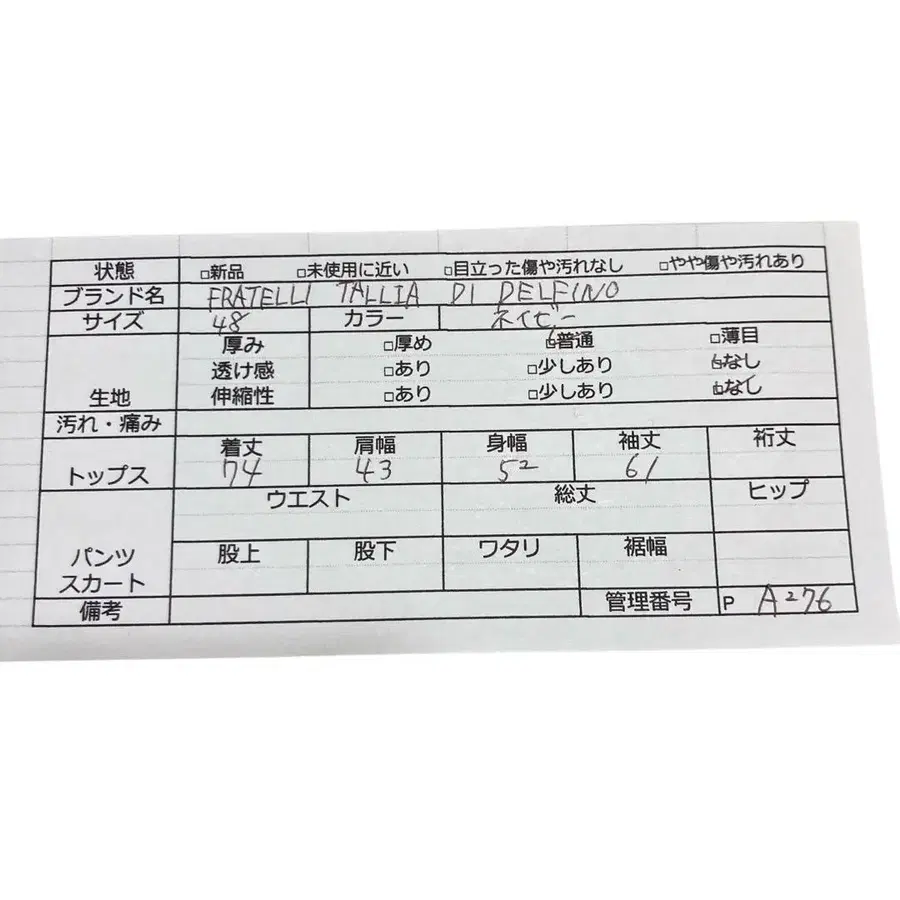 状態 □新品 □未使用に近い □目立った傷や汚れなし □やや傷や汚れあり
ブランド名 FRATELLI TALLIA DI DELFINO
サイズ 48 カラー ネイビー
厚み □厚め □普通 □薄目
透け感 □あり □少しあり □なし
生地 伸縮性 □あり □少しあり □なし
汚れ・痛み
着丈 肩幅 身幅 袖丈 裄丈
トップス 74 43 52 61
ウエスト 総丈 ヒップ
股上 股下 ワタリ 裾幅
パンツ
スカート
備考 管理番号 P A276